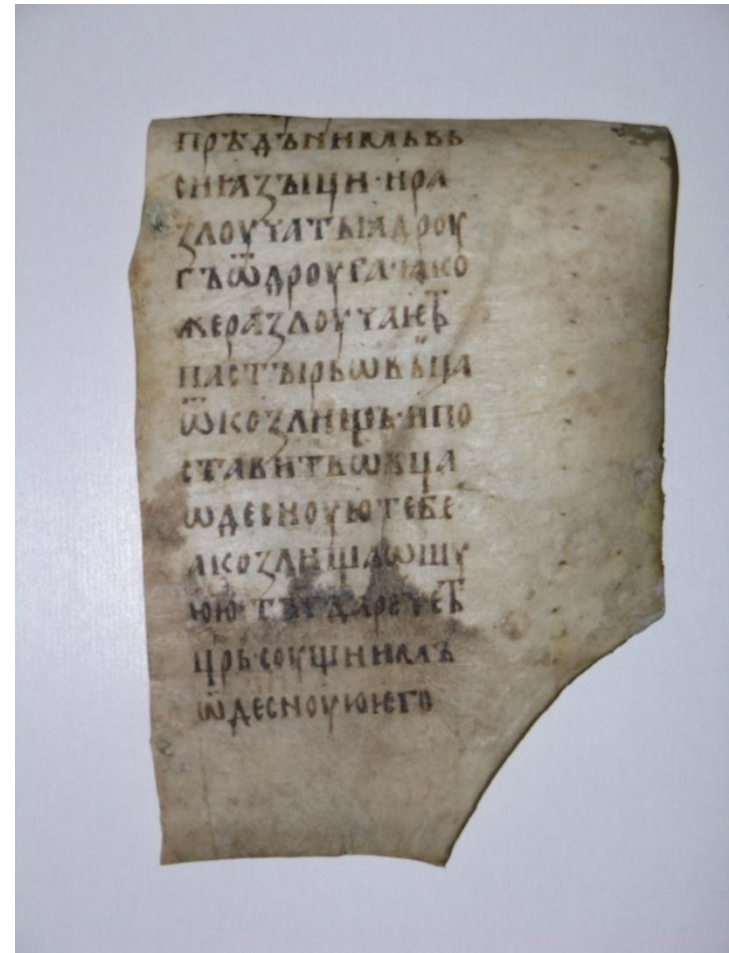 прѣдънимьвь
сиꙗзъıци·ира
злоучатьıадроу
гъѿдроуга·ꙗко
жеразлоучаѥтъ
пастъıрьѡвьца
ѿкозлищь·ипо
ставитьѡвца
ѡдесноуютебе·
акозлищаѡшу
юю·тъгдаречетъ
црь·соущиимъ
ѡдесноуюѥго